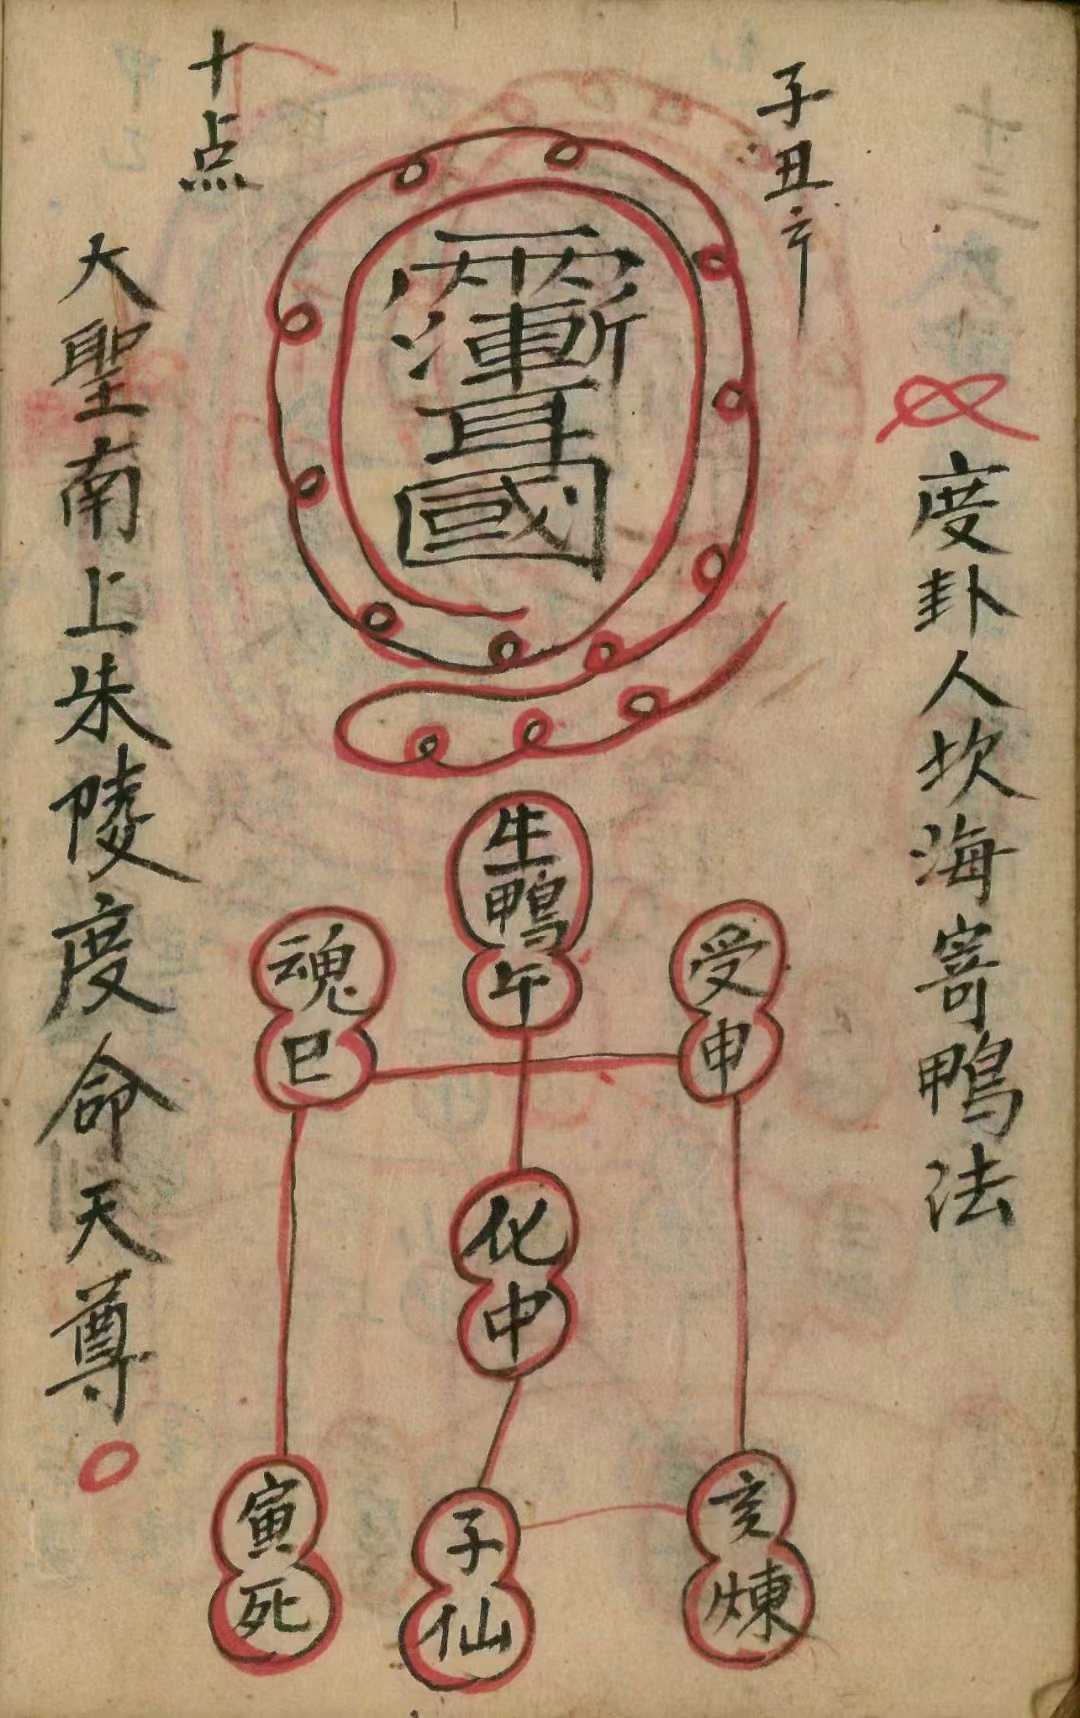 度卦人坎海寄鴨法
子丑
十点
國
生鴨
午
受
申
魂
巳
化
中
亥
煉
子
仙
寅
死
大聖南上朱陵度命天尊